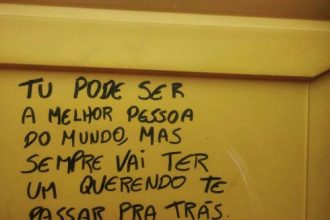 TU PODE SER
A MELHOR PESSOA
DO MUNDO, MAS
SEMPRE VAI TER
UM QUERENDO TE
PASSAR PRA TRÁS.